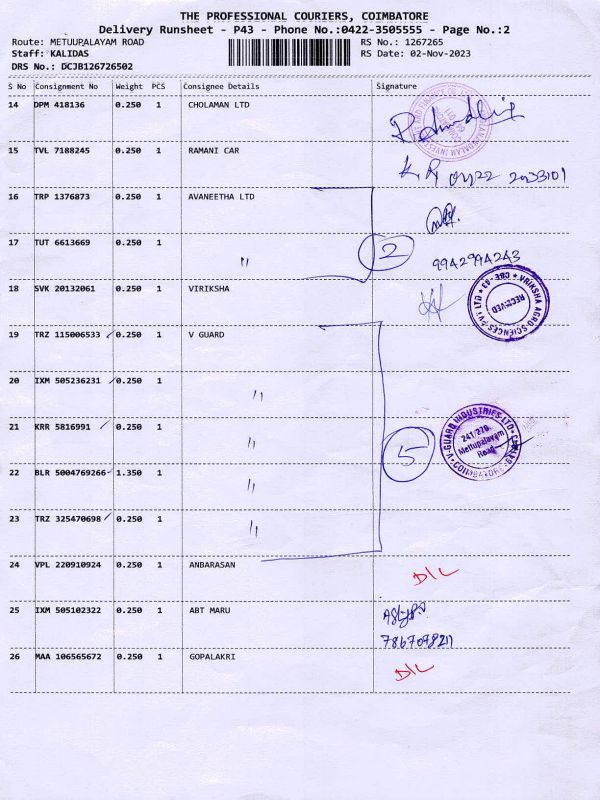 THE PROFESSIONAL COURIERS, COIMBATORE
Delivery Runsheet - P43 - Phone No.:0422-3505555 - Page No.:2
Route: METUUPALAYAM ROAD RS No.: 1267265
Staff: KALIDAS RS Date: 02-Nov-2023
DRS No.: DCJB126726502
S No Consignment No Weight PCS Consignee Details Signature
14 DPM 418136 0.250 1 CHOLAMAN LTD
15 TVL 7188245 0.250 1 RAMANI CAR
K. R 0422 2433101
16 TRP 1376873 0.250 1 AVANEETHA LTD
17 TUT 6613669 0.250 1 " 2
9942994243
18 SVK 20132061 0.250 1 VIRIKSHA
VRIKSHA AGRO SCIENCES PVT LTD * CBE - 03 *
RECEIVED
19 TRZ 115006533 ✓ 0.250 1 V GUARD
20 IXM 505236231 ✓ 0.250 1 "
21 KRR 5816991 ✓ 0.250 1 " 5
V-GUARD INDUSTRIES LTD
241/279,
Mettupalayam
Road
COIMBATORE
22 BLR 5004769266 ✓ 1.350 1 "
23 TRZ 325470698 ✓ 0.250 1 "
24 VPL 220910924 0.250 1 ANBARASAN D/L
25 IXM 505102322 0.250 1 ABT MARU
7867098211
26 MAA 106565672 0.250 1 GOPALAKRI D/L